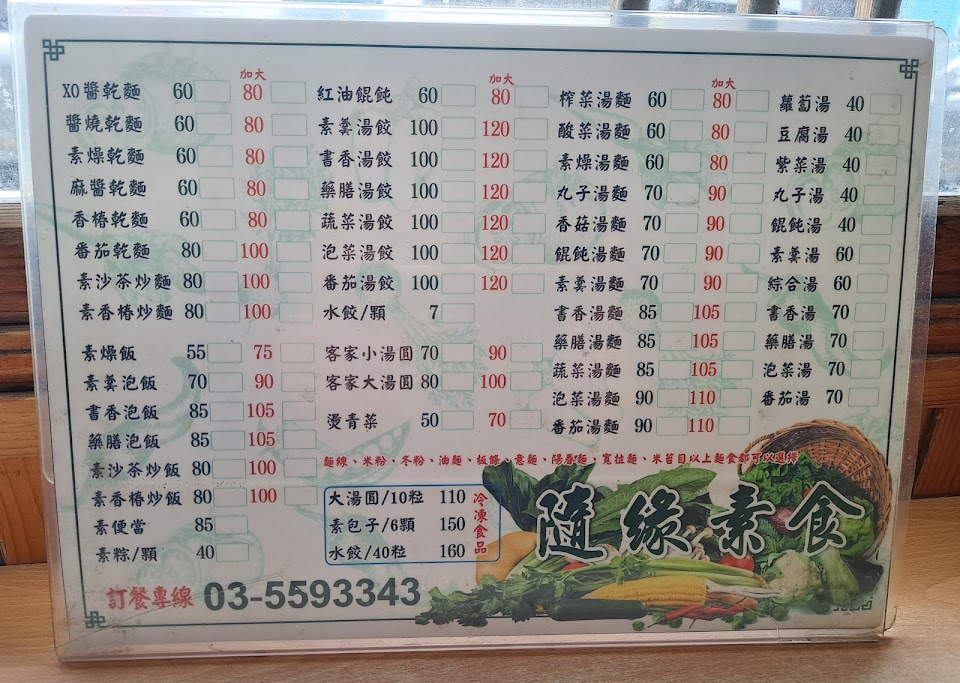 加大
XO醬乾麵 60 80
醬燒乾麵 60 80
素燥乾麵 60 80
麻醬乾麵 60 80
香椿乾麵 60 80
番茄乾麵 80 100
素沙茶炒麵 80 100
素香椿炒麵 80 100
素燥飯 55 75
素羹泡飯 70 90
書香泡飯 85 105
藥膳泡飯 85 105
素沙茶炒飯 80 100
素香椿炒飯 80 100
素便當 85
素粽/顆 40
加大
紅油餛飩 60 80
素羹湯餃 100 120
書香湯餃 100 120
藥膳湯餃 100 120
蔬菜湯餃 100 120
泡菜湯餃 100 120
番茄湯餃 100 120
水餃/顆 7
客家小湯圓 70 90
客家大湯圓 80 100
燙青菜 50 70
加大
榨菜湯麵 60 80
酸菜湯麵 60 80
素燥湯麵 60 80
丸子湯麵 70 90
香菇湯麵 70 90
餛飩湯麵 70 90
素羹湯麵 70 90
書香湯麵 85 105
藥膳湯麵 85 105
蔬菜湯麵 85 105
泡菜湯麵 90 110
番茄湯麵 90 110
蘿蔔湯 40
豆腐湯 40
紫菜湯 40
丸子湯 40
餛飩湯 40
素羹湯 60
綜合湯 60
書香湯 70
藥膳湯 70
泡菜湯 70
番茄湯 70
麵線、米粉、冬粉、油麵、板條、意麵、陽春麵、寬拉麵、米苔目以上麵食都可以選擇
大湯圓/10粒 110
素包子/6顆 150
水餃/40粒 160
冷凍食品
隨緣素食
訂餐專線 03-5593343